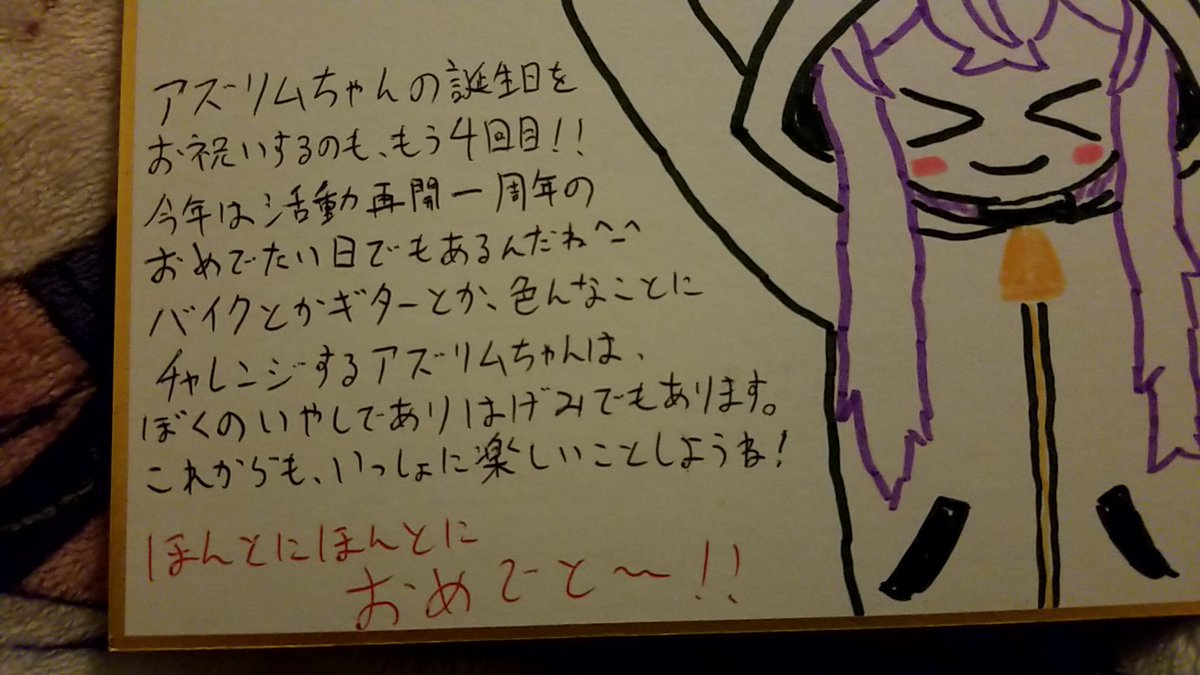 アズリムちゃんの誕生日を
お祝いするのも、もう4回目!!
今年は活動再開一周年の
おめでたい日でもあるんだね^-^
バイクとかギターとか、色んなことに
チャレンジするアズリムちゃんは、
ぼくのいやしでありはげみでもあります。
これからも、いっしょに楽しいことしようね!
ほんとにほんとに
おめでと〜!!